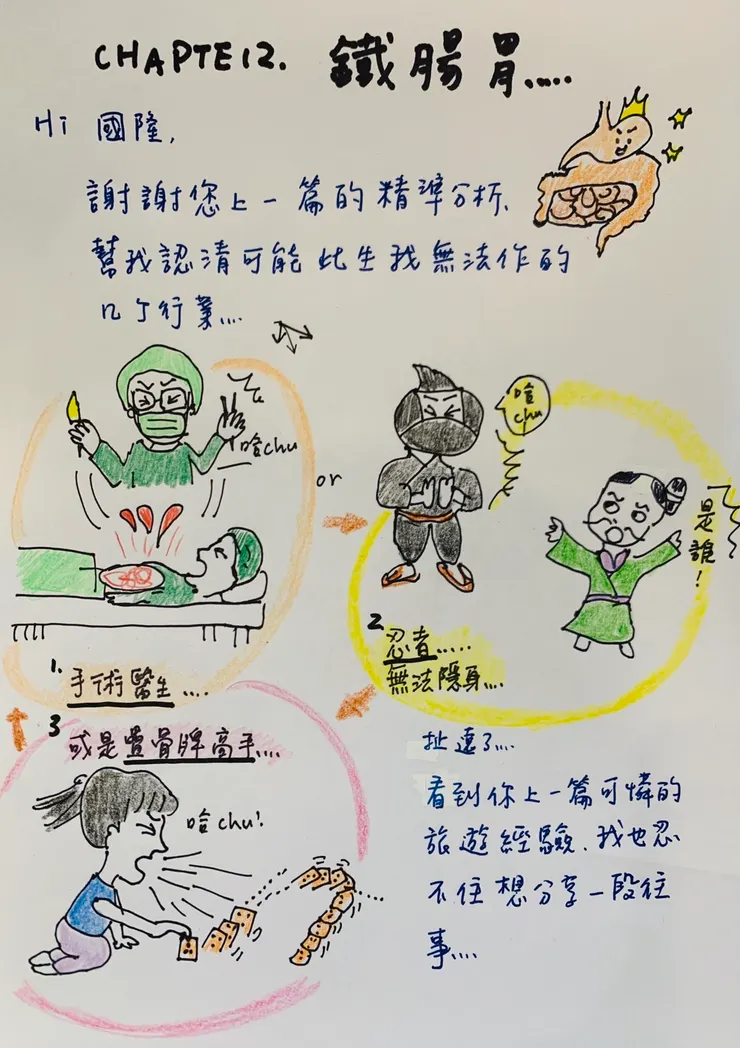 CHAPTE12. 鐵腸胃.....
Hi 國隆,
謝謝您上一篇的精準分析,
幫我認清可能此生我無法作的
几丁行業....
哈chu
or
哈
chu
是誰!
1. 手術醫生....
2. 忍者.....
無法隱身....
3 或是疊骨牌高手....
哈chu!
扯遠了....
看到你上一篇可憐的
旅遊經驗,我也忍
不住想分享一段往
事....